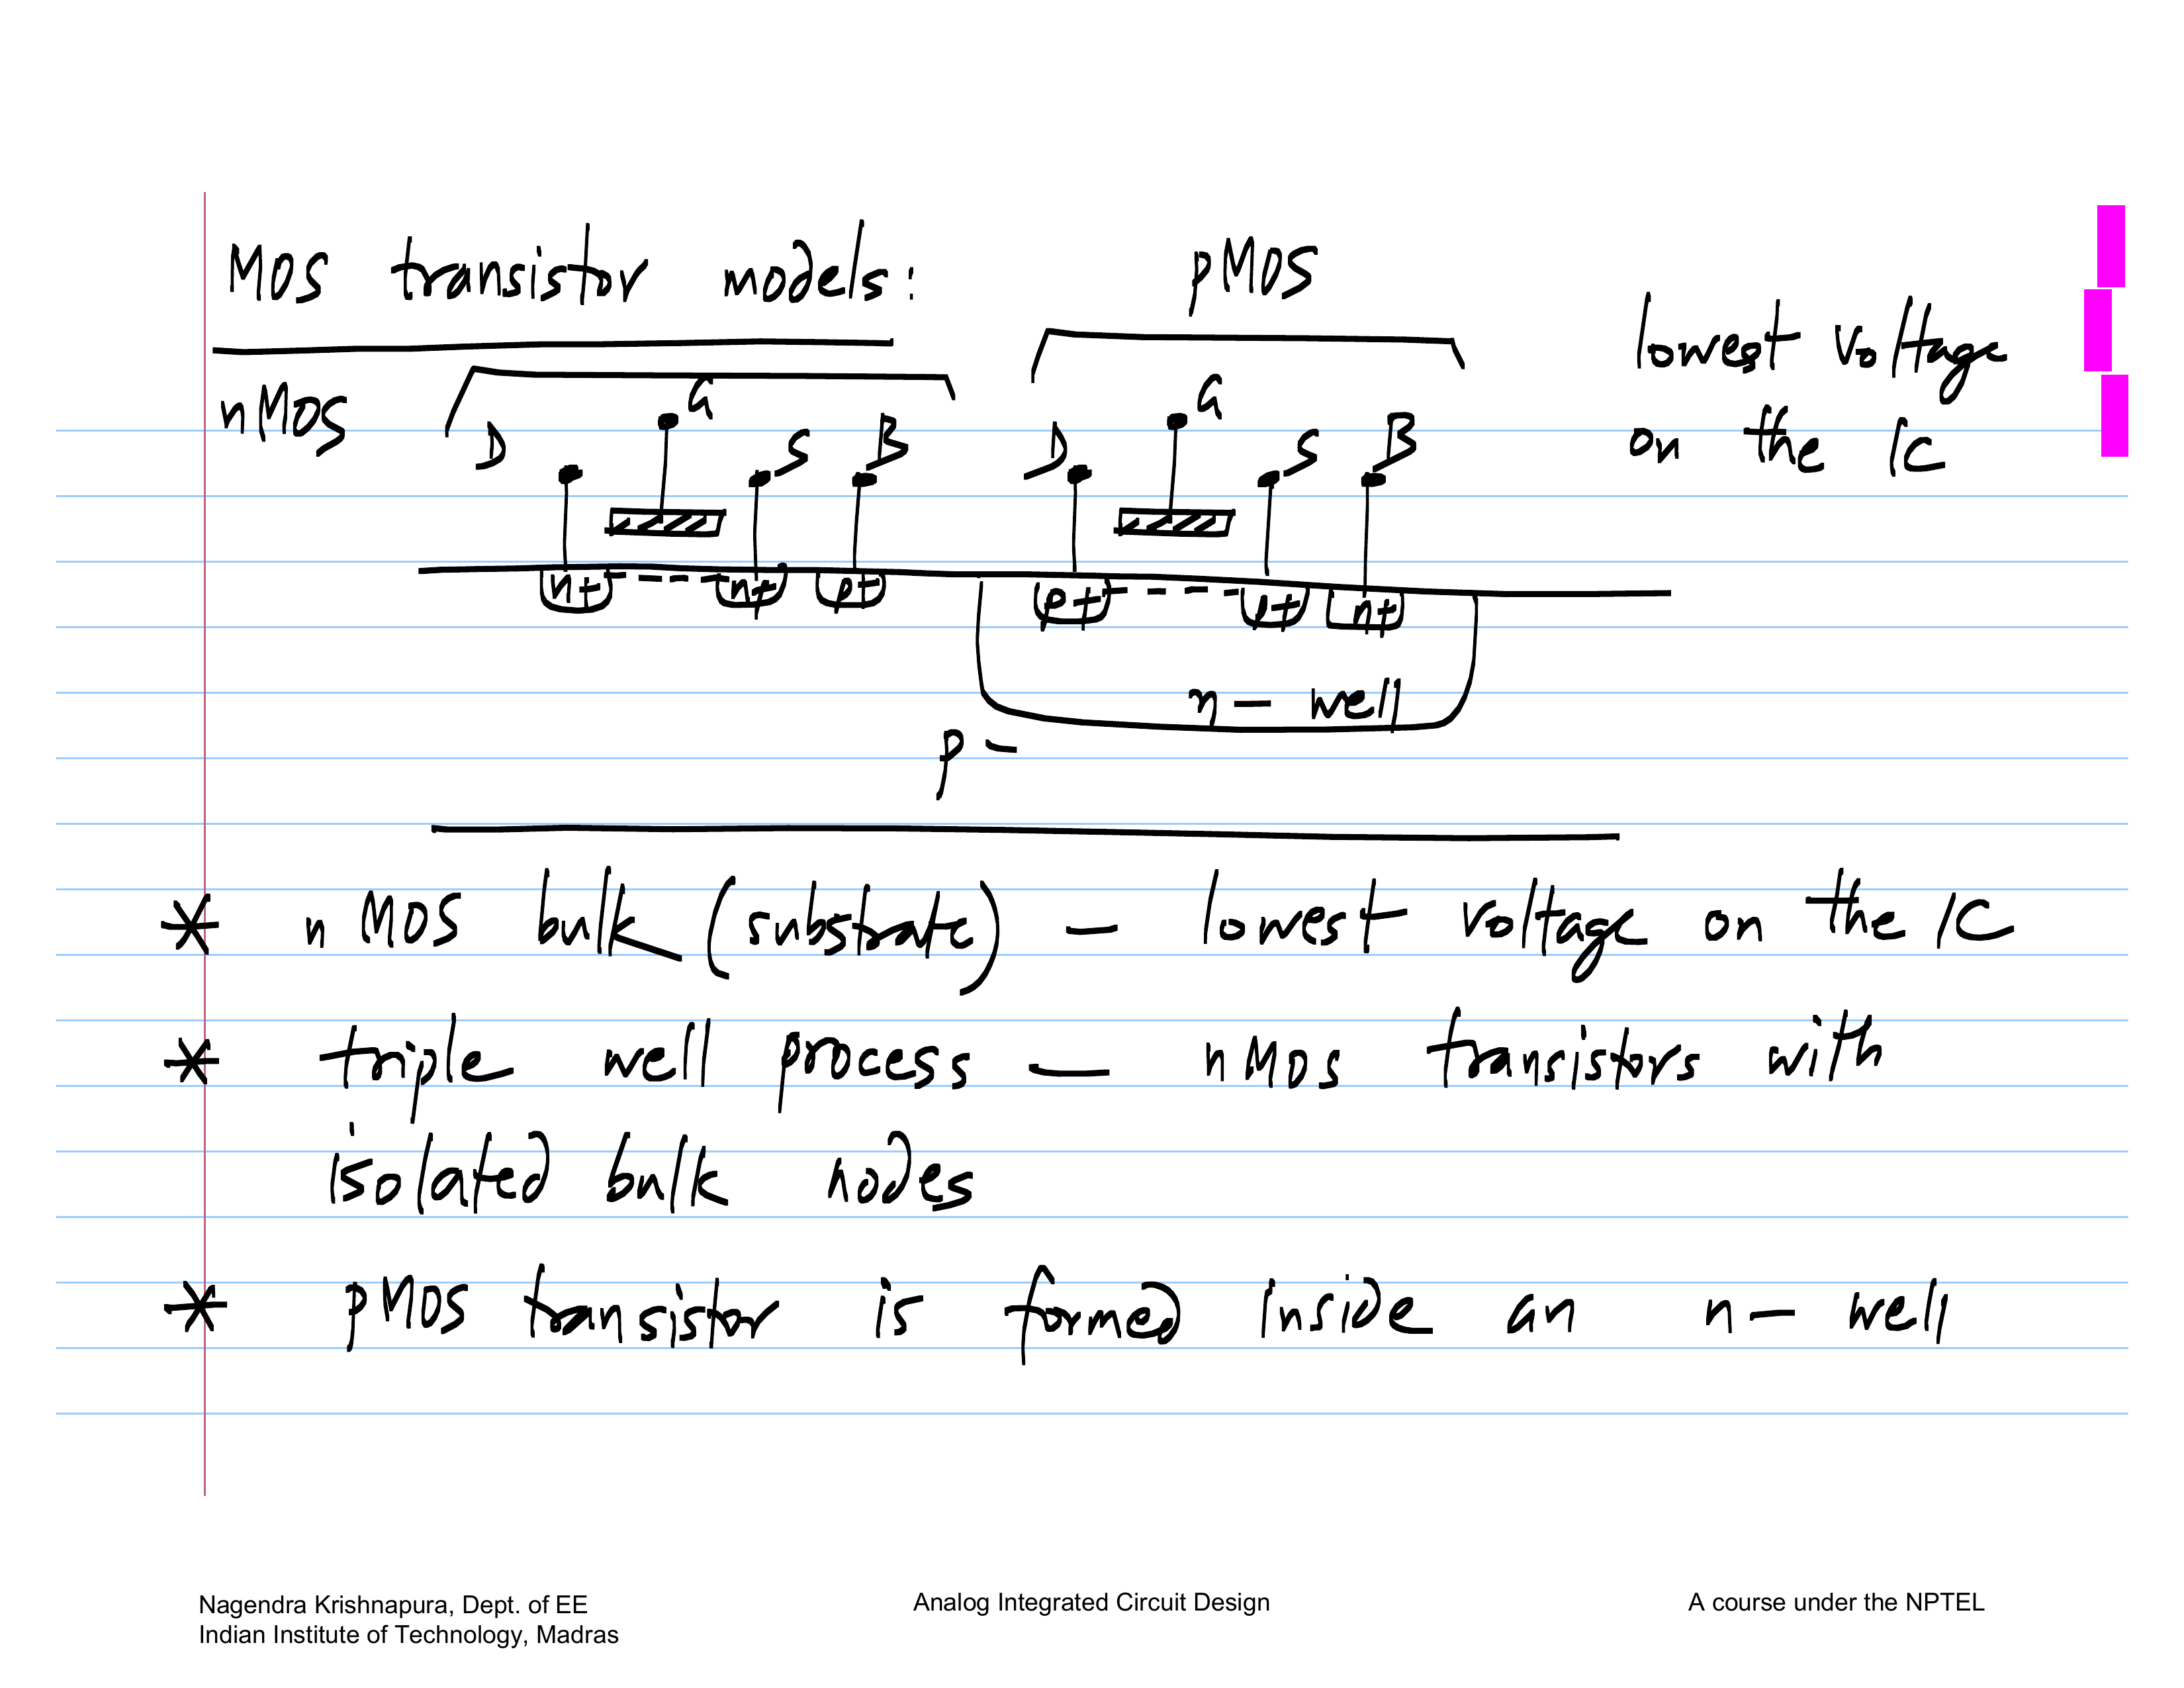 MOS transistor models: pMOS
lowest voltage
nMOS
on the IC
G G
D S B D S B
n+ n+ p+ p+ p+ n+
n- well
p-
* nMOS bulk (substrate) — lowest voltage on the IC
* triple well process — nMOS transistors with
isolated bulk nodes
* pMOS transistor is formed inside an n- well
Nagendra Krishnapura, Dept. of EE
Indian Institute of Technology, Madras
Analog Integrated Circuit Design
A course under the NPTEL